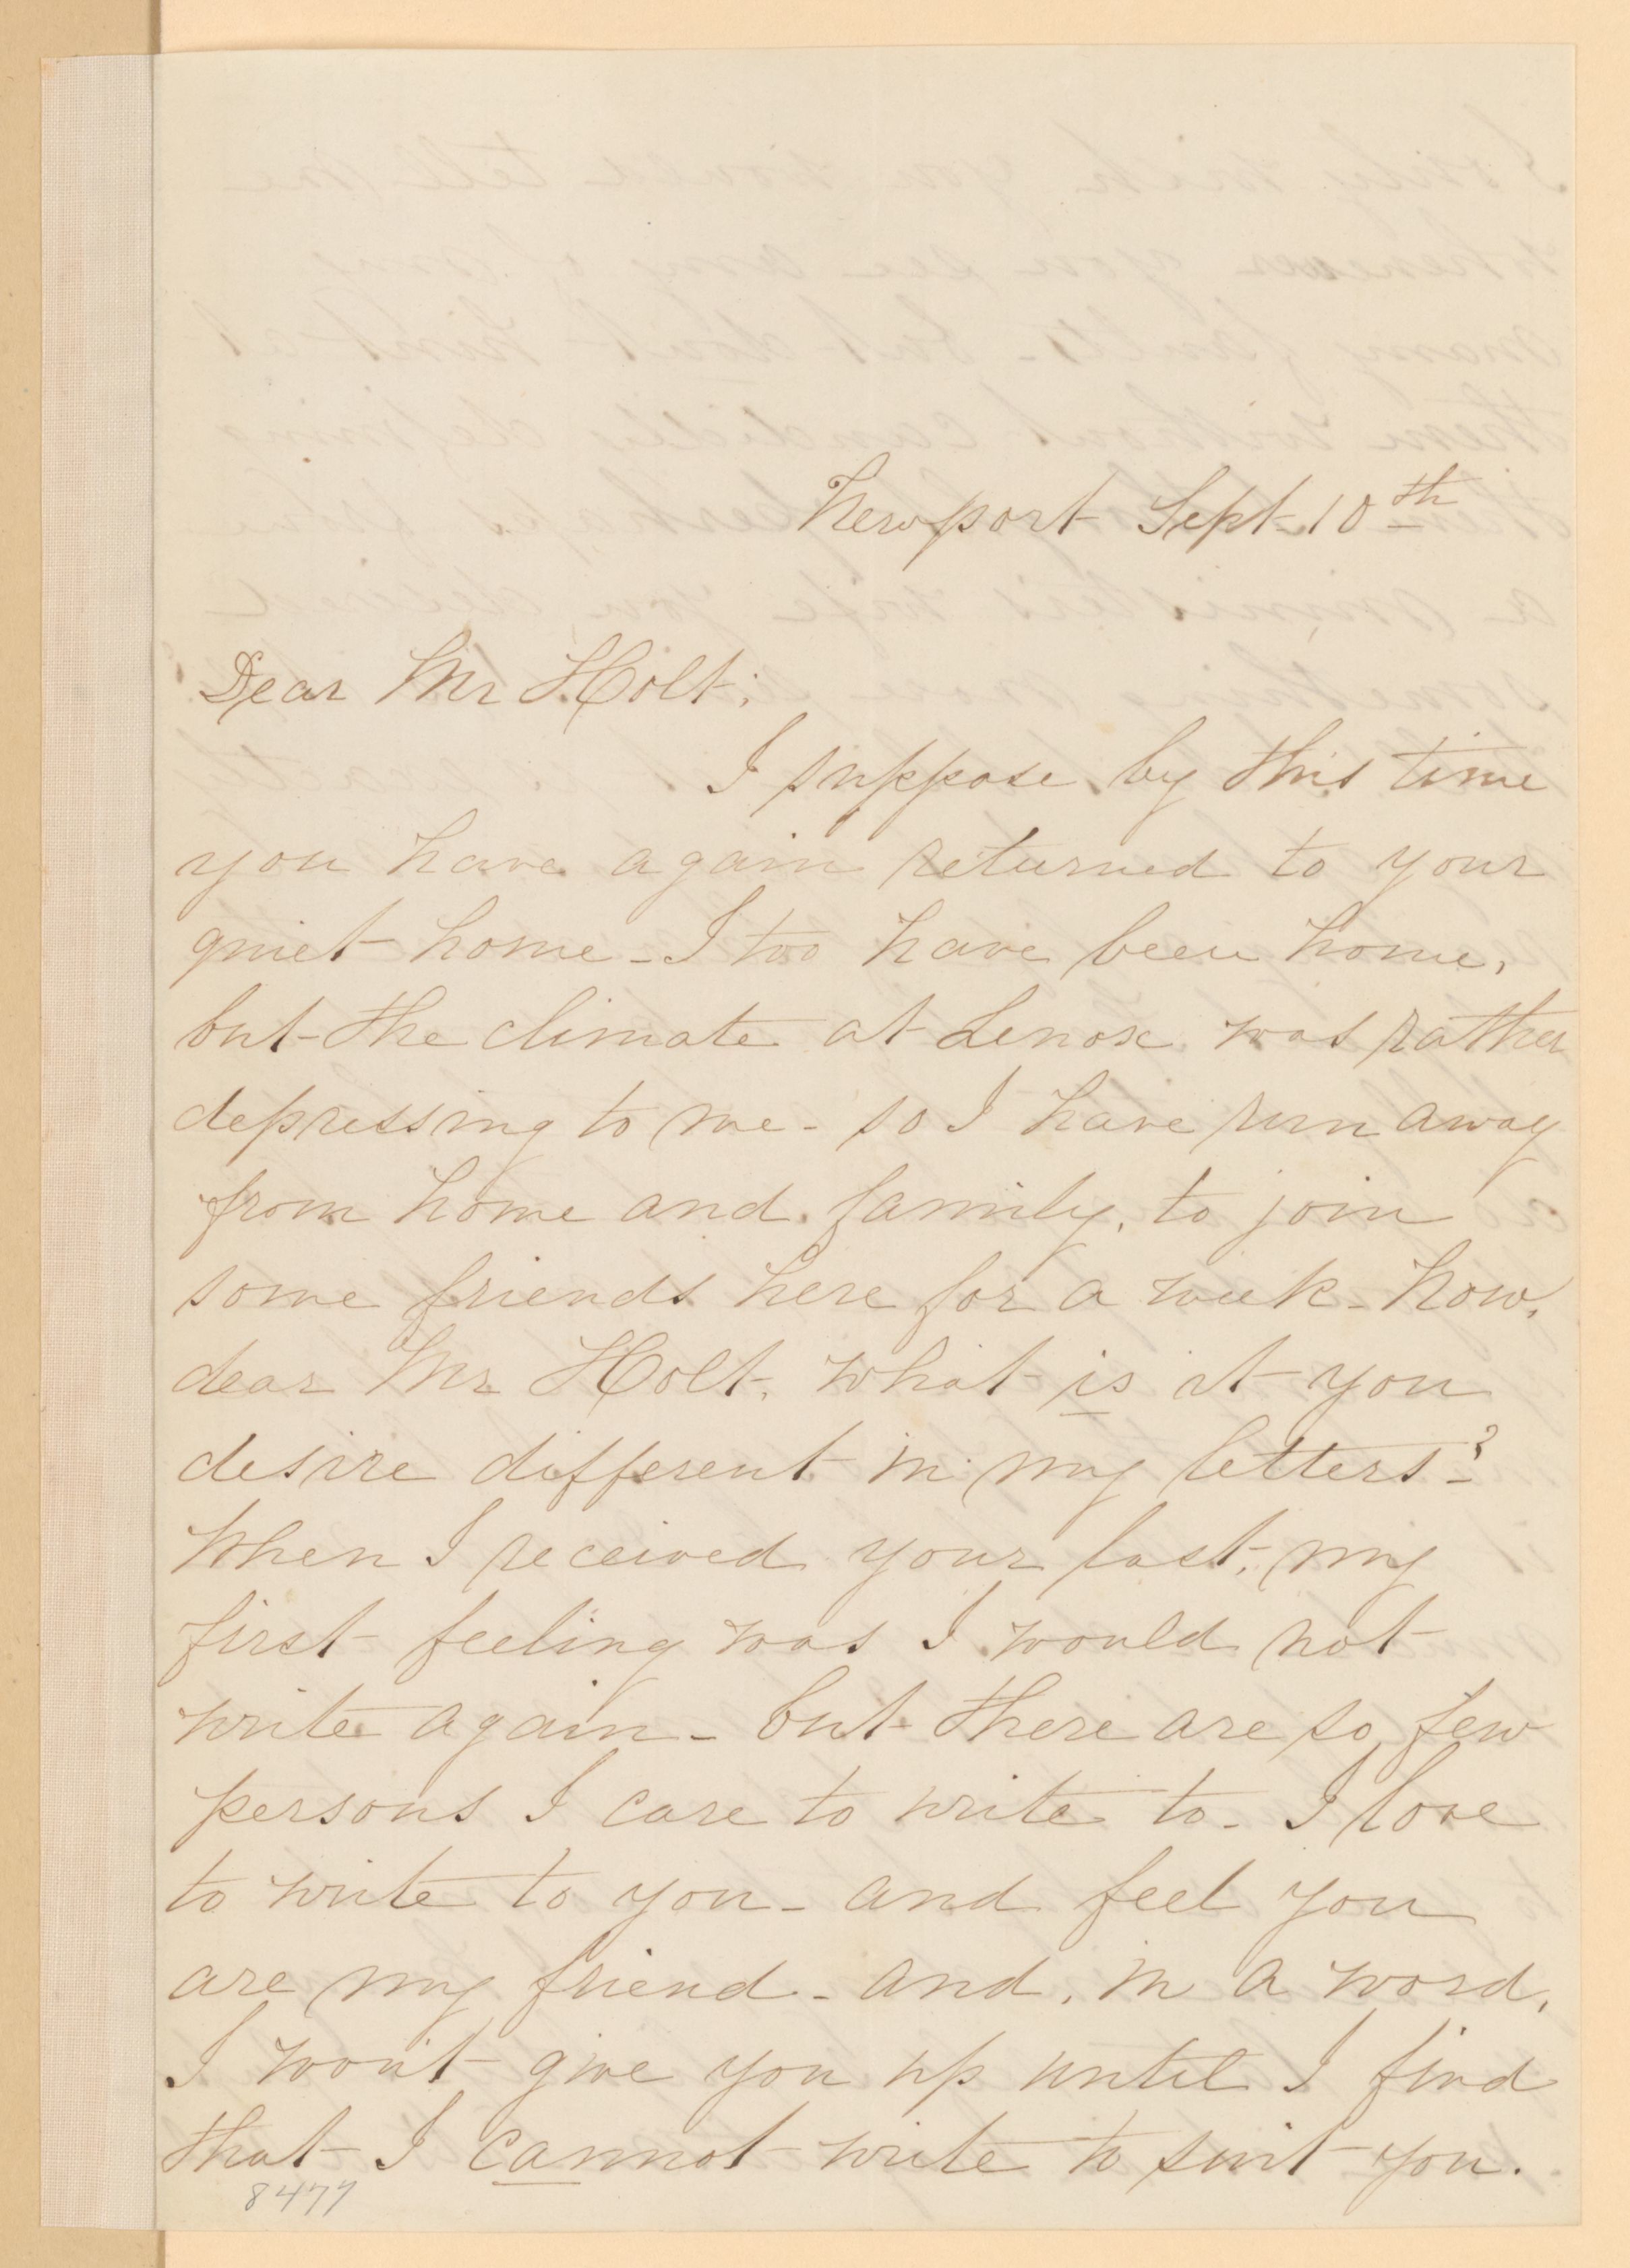 Newport Sept 10th
Dear Mr Holt;
I suppose by this time
you have again returned to your
quiet home - I too have been home,
but the climate at Lenox was rather
depressing to me - so I have run away
from home and family, to join
some friends here for a week - Now,
dear Mr Holt, what is it you
desire different in my letters?
When I received your last, my
first feeling was I would not
write again - but there are so few
persons I care to write to - I love
to write to you - and feel you
are my friend - and, in a word,
I won't give you up until I find
that I cannot write to suit you.
8477